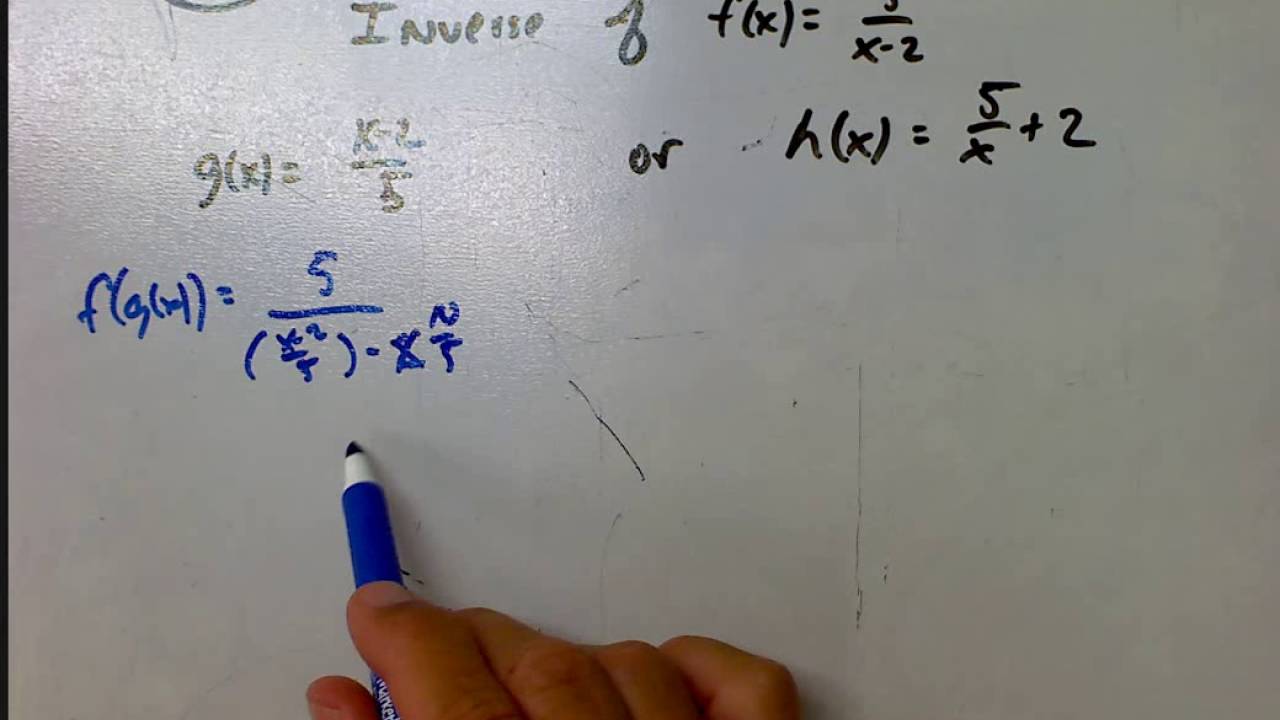 Inverse of f(x) = 5/(x-2)
g(x) = (x-2)/5 or h(x) = 5/x + 2
f(g(x)) = 5/(((x-2)/5) - 10/5)